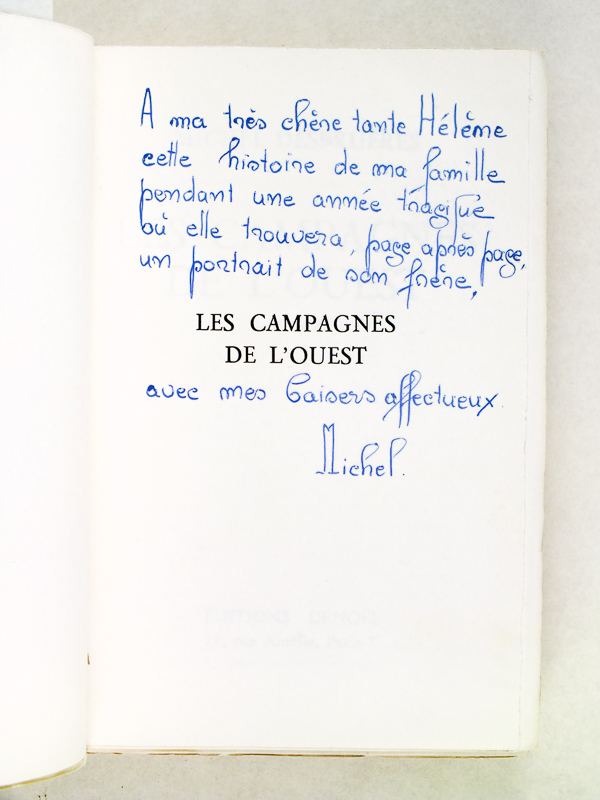 A ma très chère tante Hélème
cette histoire de ma famille
pendant une année tragique
où elle trouvera, page après page,
un portrait de son frère,
LES CAMPAGNES
DE L'OUEST
avec mes baisers affectueux.
Michel.